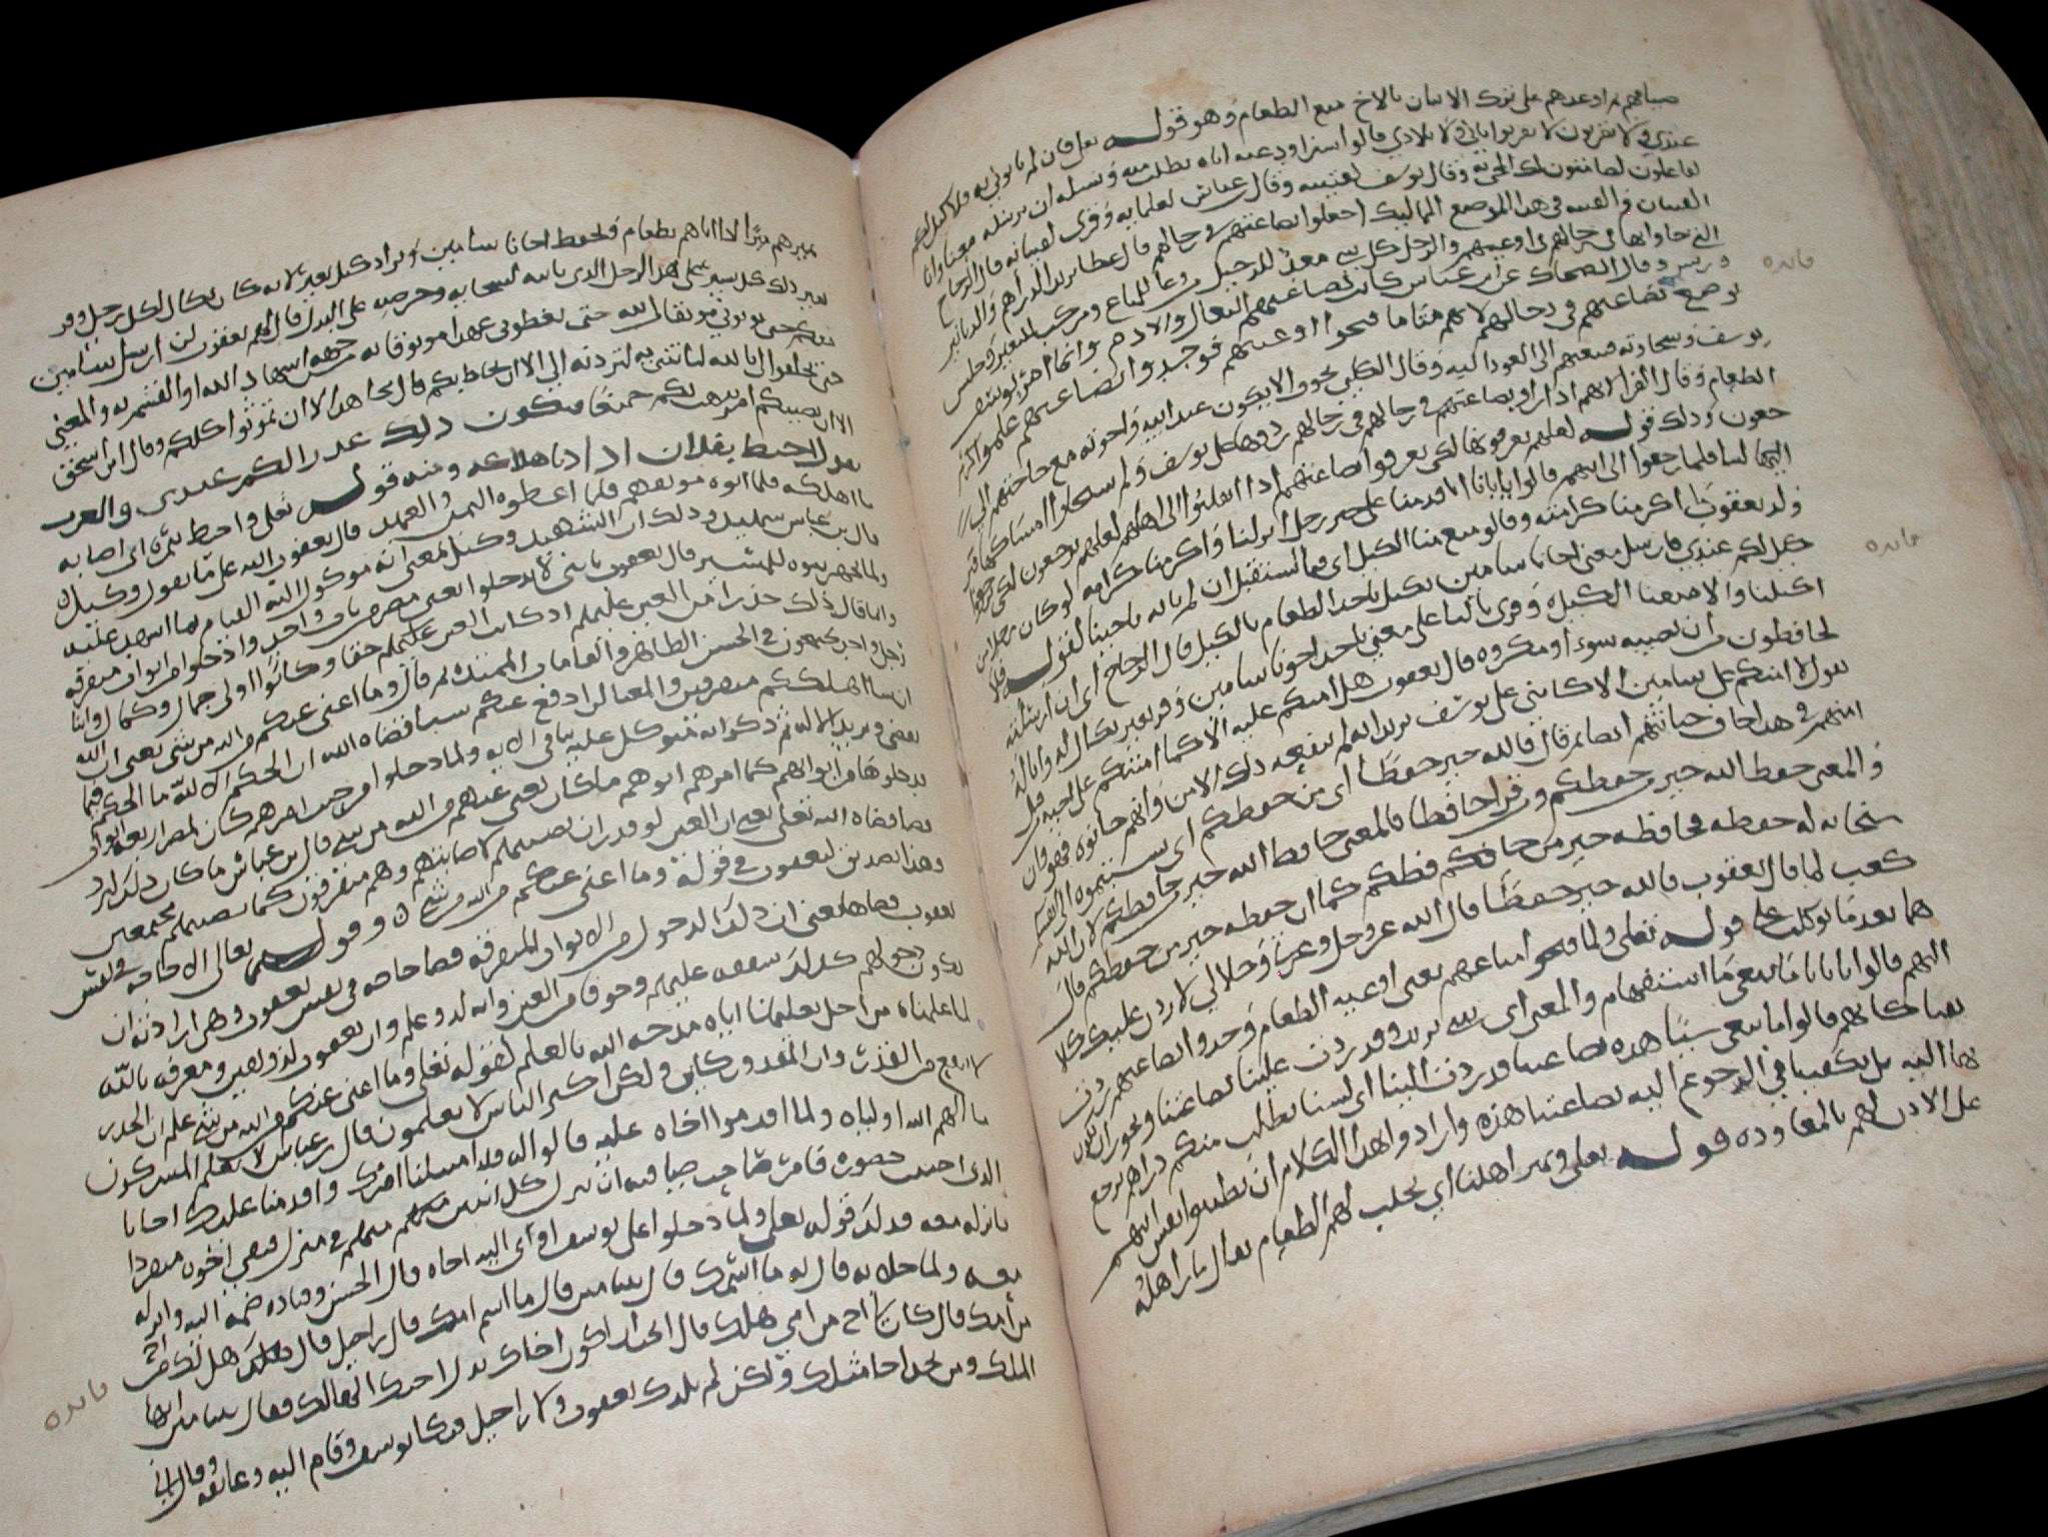 على ترك الاتيان بالاخ منع الطعام وهو قوله تعالى فان لم تاتوني به فلا كيل لكم
عندي ولا تقربون لا تقربوا بابي ولا بلادي قالوا سنراود عنه اباه نطلب منه ونسله ان يرسله معنا وانا
لفاعلون لضامنون لك المجي به وقال يوسف لفتيته وقال ابن عباس لغلمانه وقرى لفتيانه قال الزجاج
الفتيان والفتيه في هذا الموضع المماليك اجعلوا بضاعتهم في رحالهم قال عطا يريد الدراهم والدنانير
التي جاوا بها في رحالهم في اوعيتهم والرحل كل شي معد للرحيل من وعا للمتاع ومركب للبعير وحلس
ورسن وقال الضحاك عن ابن عباس كانت بضاعتهم النعال والادم وانما امر يوسف
بوضع بضاعتهم في رحالهم لانهم متى ما فتحوا اوعيتهم فوجدوا بضاعتهم علموا كرم
يوسف وسخاوته فيبعثهم الى العود اليه وقال الكلبي تخوف الا يكون عند ابيه واخوته مع حاجتهم الى
الطعام وقال الفرا انهم اذا راوا بضاعتهم في رحالهم ردوها على يوسف ولم يستحلوا امساكها
وذلك قوله لعلهم يعرفونها لكي يعرفوا بضاعتهم اذا انقلبوا الى اهلهم لعلهم يرجعون لكي يرجعوا
الينا فلما رجعوا الى ابيهم قالوا يا ابانا انا قدمنا على خير رجل انزلنا واكرمنا كرامه لو كان رجلا من
ولد يعقوب ما اكرمنا كرامته وقالوا منع منا الكيل اي فيما نستقبل ان لم ناته باخينا لقوله فلا
كيل لكم عندي فارسل معنا اخانا بنيامين نكتل ناخذ الطعام بالكيل قال الزجاج اي ان ارسلته
اكتلنا والا منعنا الكيل وقرى باليا على معنى ياخذ اخونا بنيامين وقر بعير يكال له وانا له
لحافظون من ان يصيبه سوء او مكروه قال يعقوب هل امنكم عليه الا كما امنتكم على اخيه من قبل
يقول لا امنكم على بنيامين الا كامني على يوسف يريد انه لم ينفعه ذلك الامن وانهم خانوه فهو وان
امنهم في هذا خاف خيانتهم ايضا ثم قال فالله خير حفظا اي من حفظكم
والمعنى حفظ الله خير من حفظكم وقرى حافظا فالمعنى حافظ الله خير من حافظكم لان لله
سبحانه له حفظه فحافظه خير من حافظكم كما ان حفظه خير من حفظكم قال
كعب لما قال يعقوب فالله خير حفظا قال الله عز وجل وعزتي وجلالي لاردن عليك كلا
هما بعد ما توكلت علي قوله تعالى ولما فتحوا متاعهم يعني اوعيه الطعام وجدوا بضاعتهم ردت
اليهم قالوا يا ابانا ما نبغي ما استفهام والمعنى اي شي نريد وقد ردت علينا بضاعتنا ويجوز ان يكون
نفيا كانهم قالوا ما نبغي شيئا هذه بضاعتنا قد ردت الينا اي لسنا نطلب منك دراهم نرجع
بها اليه بل تكفينا في الرجوع اليه بضاعتنا هذه وارادوا بهذا الكلام ان تطيب نفس ابيهم
على الاذن لهم بالمعاوده قوله تعالى ونمير اهلنا اي نجلب لهم الطعام يقال مار اهله
فائده
فائده
يميرهم ميرا اذا اتاهم بطعام ونحفظ اخانا بنيامين ونزداد كيل بعير لانه كان يكال لكل رجل وقر
بعير ذلك كيل يسير على هذا الرجل الذي ناتيه لسخايه وحرصه على البذل قال لهم يعقوب لن ارسل بنيامين
معكم حتى توتوني موثقا من الله حتى تعطوني عهدا موثوقا به من جهه اشهاد الله او القسم به والمعنى
حتى تحلفوا لي بالله لتاتنني به لتردنه الي الا ان يحاط بكم قال مجاهد الا ان تموتوا كلكم وقال ابن اسحق
الا ان يصيبكم امر يذهب بكم جميعا فيكون ذلك عذرا لكم عندي والعرب
تقول احيط بفلان اذا دنا هلاكه ومنه قوله تعالى واحيط بثمره اي اصابه
ما اهلكه فلما اتوه موثقهم فلما اعطوه اليمين والعهد قال يعقوب الله على ما نقول وكيل
قال ابن عباس شهيد وذلك ان الشهيد وكيل بمعنى انه موكول اليه القيام بما اشهد عليه
ولما تجهز بنوه للمسير قال يعقوب يا بني لا تدخلوا يعني مصر من باب واحد وادخلوا من ابواب متفرقه
وانما قال ذلك حذرا من العين عليهم اذ كانت العين حقا وكانوا اولي جمال وكمال وابنا
رجل واحد في الحسن الظاهر والقامات الممتده ثم قال وما اغني عنكم من الله من شي يعني ان الله
ان شا اهلككم متفرقين والمعنى لن ادفع عنكم شيا قضاه الله ان الحكم الا لله ما الحكم فيما
يقضى ويريد الا لله ثم ذكر انه متوكل عليه باقي الايه ولما دخلوا من حيث امرهم كان لمصر اربعه ابواب
يدخلوها من ابوابهم كما امرهم ابوهم ما كان يغني عنهم من الله من شي قال ابن عباس ما كان ذلك ليرد
قضا قضاه الله تعالى يعني ان العين لو قدر ان تصيبهم لاصابتهم وهم متفرقون كما تصيبهم مجتمعين
وهذا تصديق ليعقوب في قوله وما اغني عنكم من الله من شي وقوله تعالى الا حاجه في نفس
يعقوب قضاها يعني ان ذلك الدخول من الابواب المتفرقه قضا حاجه في نفس يعقوب وهي ارادته ان
يكون دخولهم كذلك شفقه عليهم وخوفا من العين وانه لذو علم وان يعقوب لذو يقين ومعرفه بالله
لما علمناه من اجل تعليمنا اياه مدحه الله بالعلم لقوله تعالى وما اغني عنكم من الله من شي علم ان الحذر
لا يرفع من القدر وان المقدور كاين ولكن اكثر الناس لا يعلمون قال ابن عباس لا يعلم المشركون
ما الهم الله اولياه ولما اقدموا اخاه عليه قالوا له قد امتثلنا امرك واقدمنا عليك اخانا
الذي احببت حضوره فامر صاحب ضيافته ان ينزل كل اثنين منهم في منزل فبقي اخوه منفردا
فانزله معه فذلك قوله تعالى ولما دخلوا على يوسف اوى اليه اخاه قال الحسن وقتاده ضمه اليه وانزله
معه ولما خلا به قال له ما اسمك قال بنيامين قال ما اسم امك قال راحيل قال فهل لك من اخ
من امك قال كان لي اخ من امي هلك قال اتحب ان اكون اخاك بدل اخيك الهالك فقال بنيامين ايها
الملك ومن يجد اخا مثلك ولكن لم يلدك يعقوب ولا راحيل فبكا يوسف وقام اليه وعانقه وقال اني
فائده